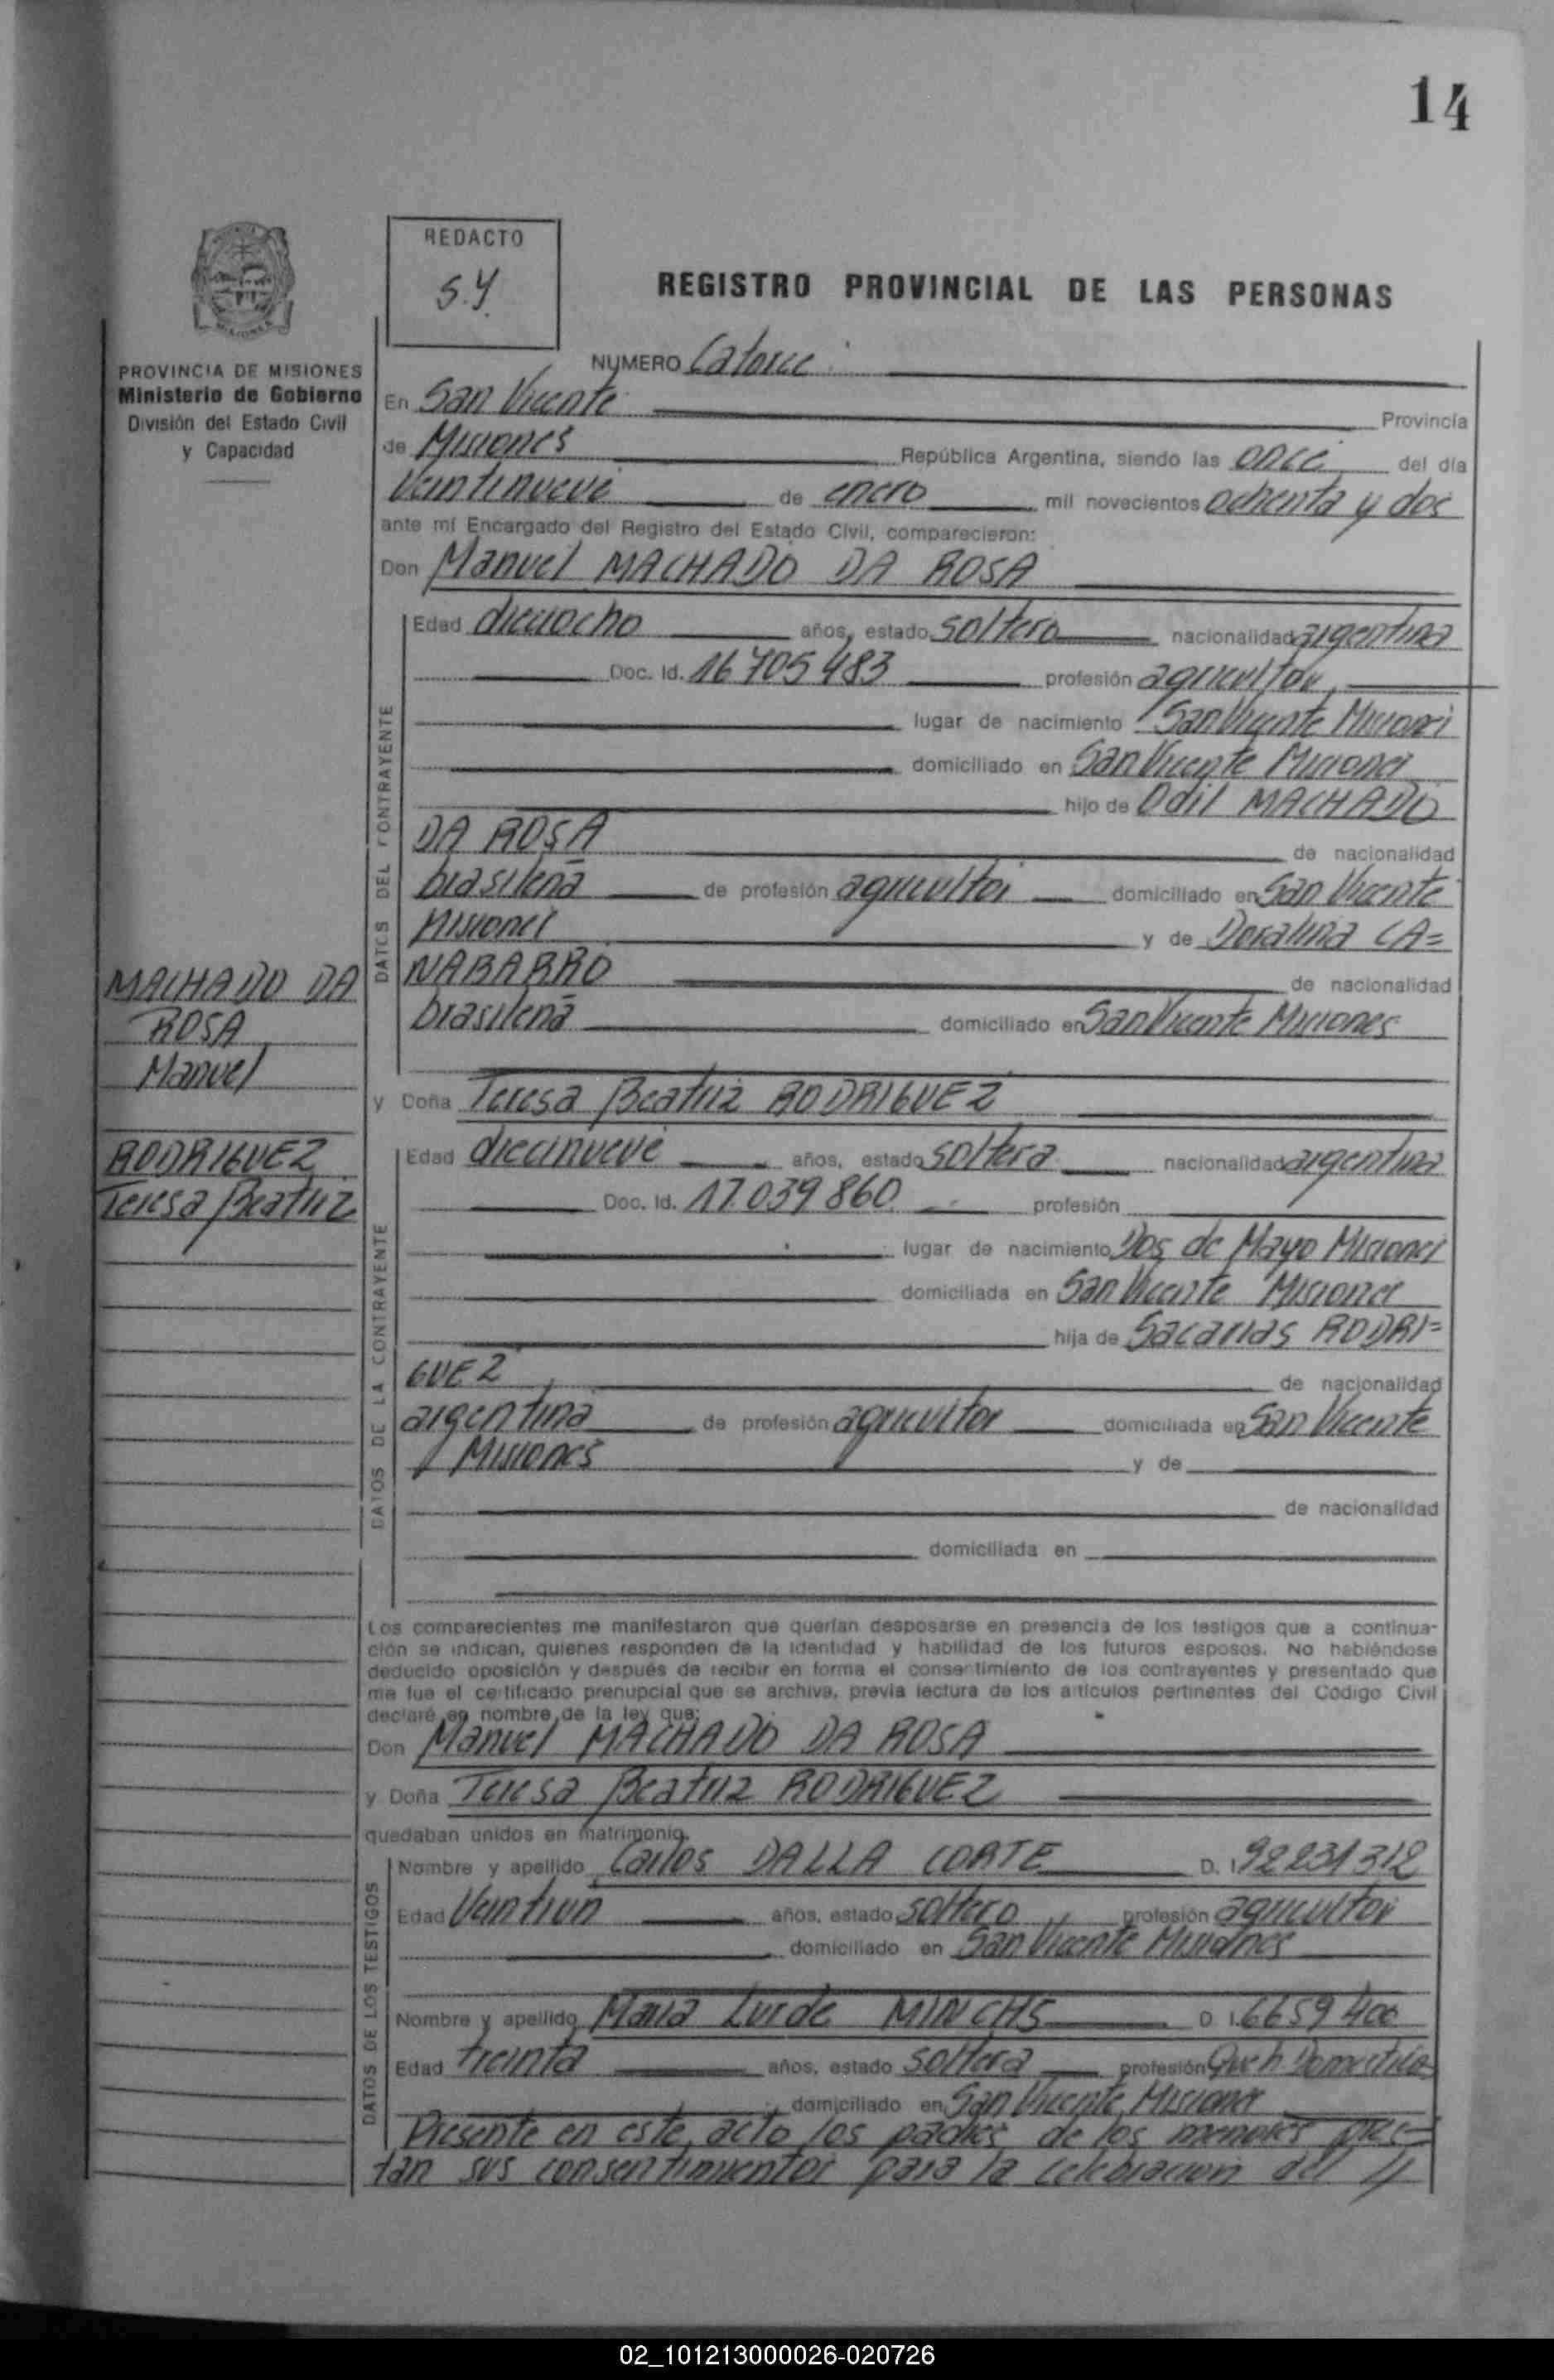 14
REDACTO
S.Y.
REGISTRO PROVINCIAL DE LAS PERSONAS
PROVINCIA DE MISIONES
Ministerio de Gobierno
División del Estado Civil
y Capacidad
NUMERO Catorce
En San Vicente Provincia
de Misiones República Argentina, siendo las once del día
Veintinueve de enero mil novecientos ochenta y dos
ante mí Encargado del Registro del Estado Civil, comparecieron:
Don Manuel MACHADO DA ROSA
DATOS DEL CONTRAYENTE
Edad dieciocho años, estado soltero nacionalidad argentina
Doc. Id. 16 705 483 profesión agricultor
lugar de nacimiento San Vicente Misiones
domiciliado en San Vicente Misiones
hijo de Odil MACHADO
DA ROSA de nacionalidad
brasileña de profesión agricultor domiciliado en San Vicente
Misiones y de Doralina CA=
NABARRO de nacionalidad
brasileña domiciliado en San Vicente Misiones
MACHADO DA
ROSA
Manuel
RODRIGUEZ
Teresa Beatriz
y Doña Teresa Beatriz RODRIGUEZ
DATOS DE LA CONTRAYENTE
Edad diecinueve años, estado soltera nacionalidad argentina
Doc. Id. 17.039 860 profesión
lugar de nacimiento Dos de Mayo Misiones
domiciliada en San Vicente Misiones
hija de Sacarias RODRI=
GUEZ de nacionalidad
argentina de profesión agricultor domiciliada en San Vicente
Misiones y de
de nacionalidad
domiciliada en
Los comparecientes me manifestaron que querían desposarse en presencia de los testigos que a continua-
ción se indican, quienes responden de la identidad y habilidad de los futuros esposos. No habiéndose
deducido oposición y después de recibir en forma el consentimiento de los contrayentes y presentado que
me fue el certificado prenupcial que se archiva, previa lectura de los artículos pertinentes del Código Civil
declaré en nombre de la ley que:
Don Manuel MACHADO DA ROSA
y Doña Teresa Beatriz RODRIGUEZ
quedaban unidos en matrimonio.
DATOS DE LOS TESTIGOS
Nombre y apellido Carlos DALLA CORTE D. I. 92231312
Edad Veintiun años, estado soltero profesión agricultor
domiciliado en San Vicente Misiones
Nombre y apellido Maria Lurde MINCHS D. I. 6659 400
Edad treinta años, estado soltera profesión Queh Domesticos
domiciliado en San Vicente Misiones
Presente en este acto los padres de los menores pres=
tan sus consentimientos para la celebracion del
02_101213000026-020726